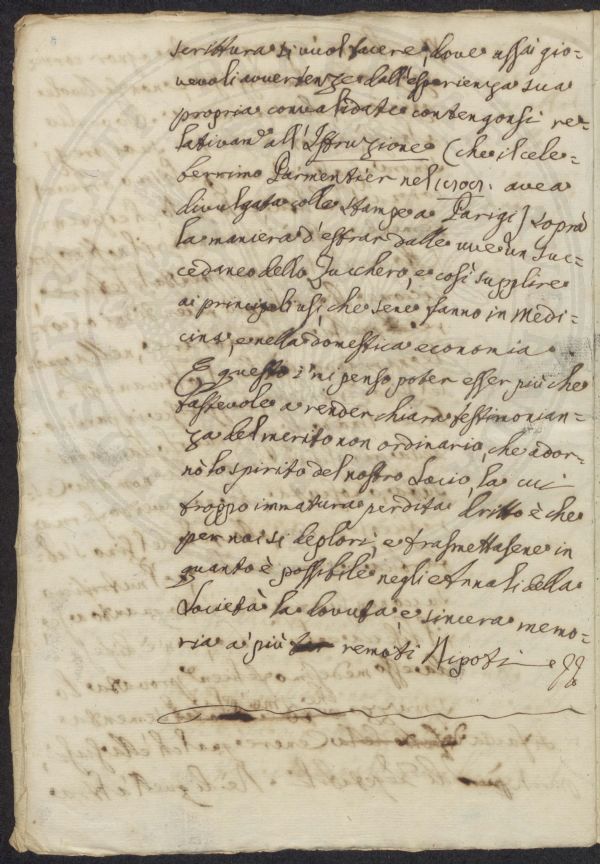 scrittura si vuol tacere, dove assai gio-
vevoli avvertenze dall'esperienza sua
propria convalidate contengonsi re-
lativam.e all'Istruzione (che il cele-
berrimo Parmentier nel avea
divulgata colle stampe a Parigi) sopra
la maniera d'estrar dalle uve un suc-
cedaneo dello Zucchero, e così supplire
ai principali usi, che se ne fanno in Medi-
cina, e nella domestica economia.
E questo i' mi penso poter esser più che
bastevole a render chiara testimonian-
za del merito non ordinario, che ador-
nò lo spirito del nostro Socio, la cui
troppo immatura perdita dritto è che
per noi si deplori, e trasmettasene in
quanto è possibile negli Annali della
Società la dovuta, e sincera memo-
ria a' più remoti Nipoti